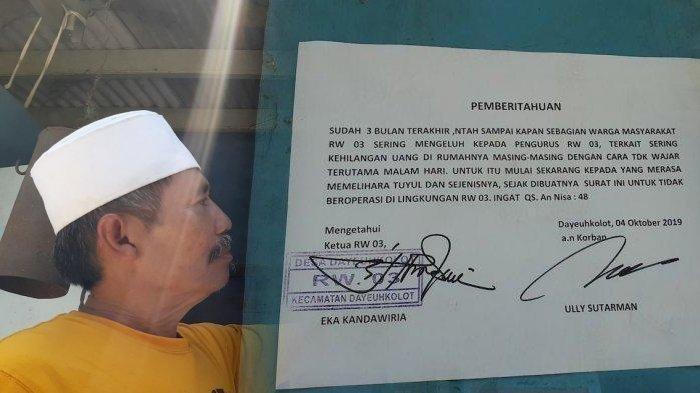 PEMBERITAHUAN
SUDAH 3 BULAN TERAKHIR ,NTAH SAMPAI KAPAN SEBAGIAN WARGA MASYARAKAT
RW 03 SERING MENGELUH KEPADA PENGURUS RW 03, TERKAIT SERING
KEHILANGAN UANG DI RUMAHNYA MASING-MASING DENGAN CARA TDK WAJAR
TERUTAMA MALAM HARI. UNTUK ITU MULAI SEKARANG KEPADA YANG MERASA
MEMELIHARA TUYUL DAN SEJENISNYA, SEJAK DIBUATNYA SURAT INI UNTUK TIDAK
BEROPERASI DI LINGKUNGAN RW 03. INGAT QS. An Nisa : 48
Mengetahui
Ketua RW 03,
Dayeuhkolot, 04 Oktober 2019
a.n Korban
DESA DAYEUHKOLOT
RW 03
KECAMATAN DAYEUHKOLOT
EKA KANDAWIRIA
ULLY SUTARMAN